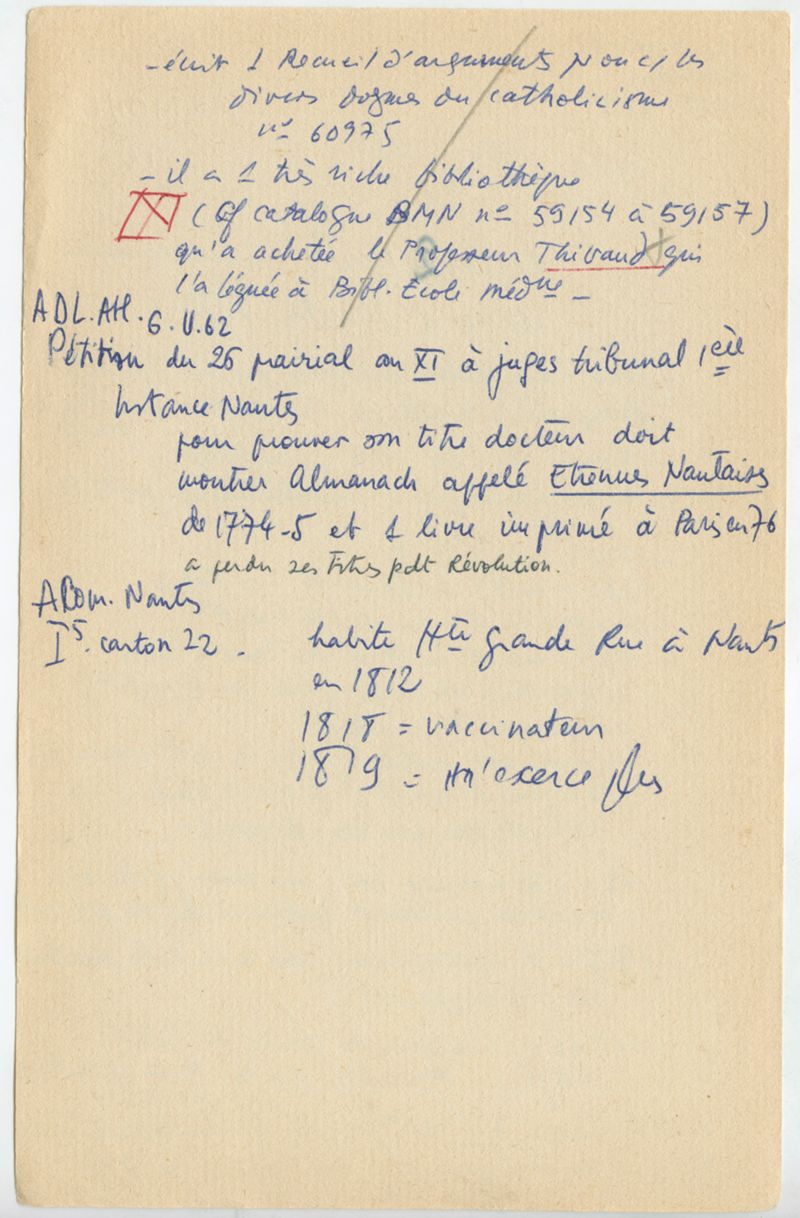 - écrit 1 Recueil d'arguments p ou c/ les
divers dogmes du catholicisme
nº 60975
- il a 1 très riche bibliothèque
(Cf catalogue BMN nº 59154 à 59157)
qu'a achetée le Professeur Thibaud qui
l'a léguée à Bibl. Ecole médne -
ADL. AH. 6. V. 62
Pétition du 26 prairial an XI à juges tribunal 1ère
Instance Nantes
pour prouver son titre docteur doit
montrer Almanach appelé Etrennes Nantaises
de 1774-5 et 1 livre imprimé à Paris en 76
a perdu ses titres pdt Révolution.
ACom. Nantes
I5. carton 22 - habite Hte Grande Rue à Nantes
en 1812
1818 = vaccinateur
1819 = n'exerce plus